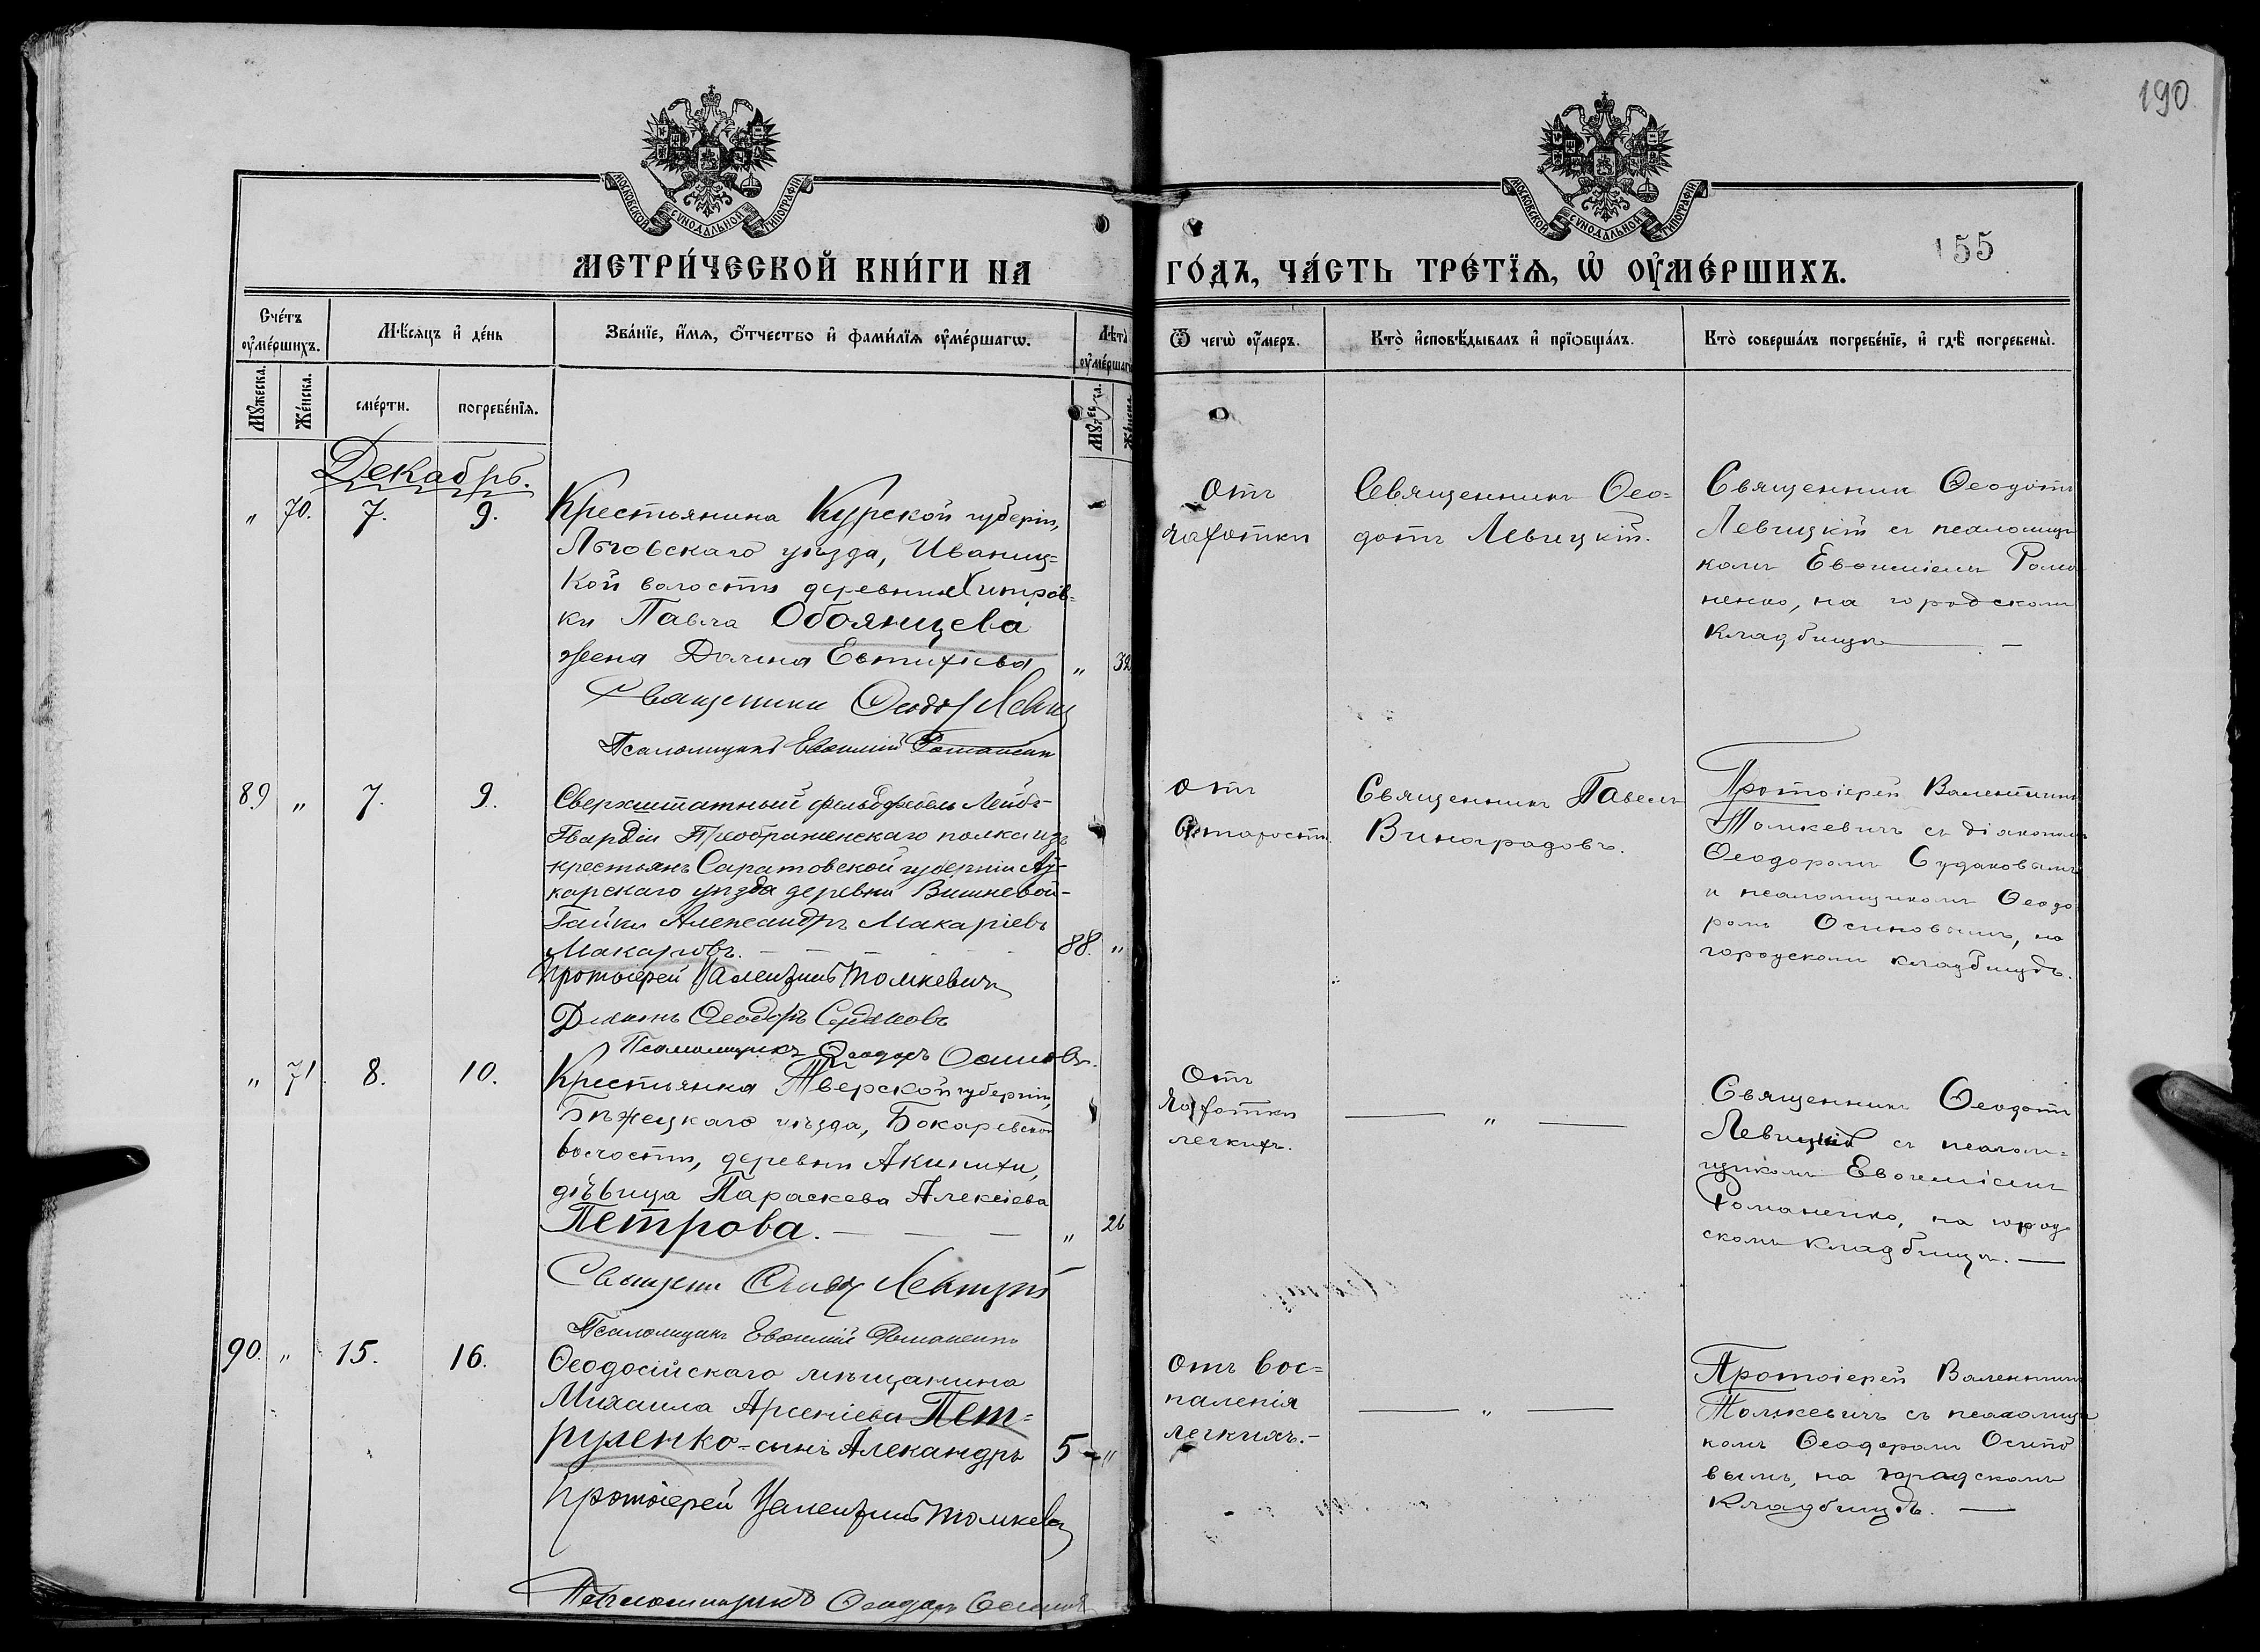 190
155
МОСКОВСКОЙ СѴНОДАЛЬНОЙ ТИПОГРАФІИ
МОСКОВСКОЙ СѴНОДАЛЬНОЙ ТИПОГРАФІИ
МЕТРИ́ЧЕСКОЙ КНИ́ГИ НА
ГО́ДЪ, ЧА́СТЬ ТРЕ́ТЇѦ, Ѡ҆ ОУ҆МЕ́РШИХЪ.
Сче́тъ оу҆ме́ршихъ.
Мꙋ́жеска.
Же́нска.
Мѣ́сѧцъ и҆ де́нь
сме́рти.
погребе́нїѧ.
Зва́нїе, и҆́мѧ, ѻ҆́тчество и҆ фами́лїѧ оу҆ме́ршагѡ.
Лѣ́та оу҆ме́ршагѡ
Ѿ чегѡ̀ оу҆́меръ.
Кто̀ и҆сповѣ́дывалъ и҆ прїѻбща́лъ.
Кто̀ соверша́лъ погребе́нїе, и҆ гдѣ̀ погребены̀.
Декабрь.
" 70. 7. 9.
Крестьянина Курской губерніи,
Льговскаго уѣзда, Иваниц=
кой волости деревни Хитров=
ки Павла Обоянцева
жена Домна Евтихіева " 32
Священникъ Ѳеодотъ
Псаломщикъ Евѳимій Романенко
Отъ
чахотки
Священникъ Ѳео=
дотъ Левицкій.
Священникъ Ѳеодотъ
Левицкій съ псаломщи
комъ Евѳиміемъ Рома
ненко, на городскомъ
кладбищѣ —
89 " 7. 9.
Сверхштатный фельдфебель Лейбъ-
Гвардіи Преображенскаго полка изъ
крестьянъ Саратовской губерніи Ат-
карскаго уѣзда деревни Вишневой-
Гайки Александръ Макаріевъ
Макаровъ. 88. "
Протоіерей Валентинъ Томкевичъ
Діаконъ Ѳеодоръ Судаковъ
Псаломщикъ Ѳеодоръ Осиповъ.
отъ
старости
Священникъ Павелъ
Виноградовъ.
Протоіерей Валентинъ
Томкевичъ съ діакономъ
Ѳеодоромъ Судаковымъ
и псаломщикомъ Ѳеодо
ромъ Осиповымъ, на
городскомъ кладбищѣ.
" 71. 8. 10.
Крестьянка Тверской губерніи,
Бѣжецкаго уѣзда, Бокаревской
волости, деревни Акинихи,
дѣвица Параскева Алексіева
Петрова. — — — " 26
Псаломщикъ Евѳимій Романенко
Отъ
чахотки
легкихъ.
— " —
Священникъ Ѳеодотъ
Левицкій съ псалом=
щикомъ Евѳиміемъ
Романенко, на город
скомъ кладбищѣ. —
90. " 15. 16.
Ѳеодосійскаго мѣщанина
Михаила Арсеніева Пет=
руленко - сынъ Алекандръ 5 - "
Протоіерей Валентинъ Томкевичъ
Псаломщикъ Ѳеодоръ Осиповъ
Отъ вос=
паленія
легкихъ. -
— " —
Протоіерей Валентинъ
Томкевичъ съ псаломщи
комъ Ѳеодоромъ Осипо
вымъ, на городскомъ
кладбищѣ. —